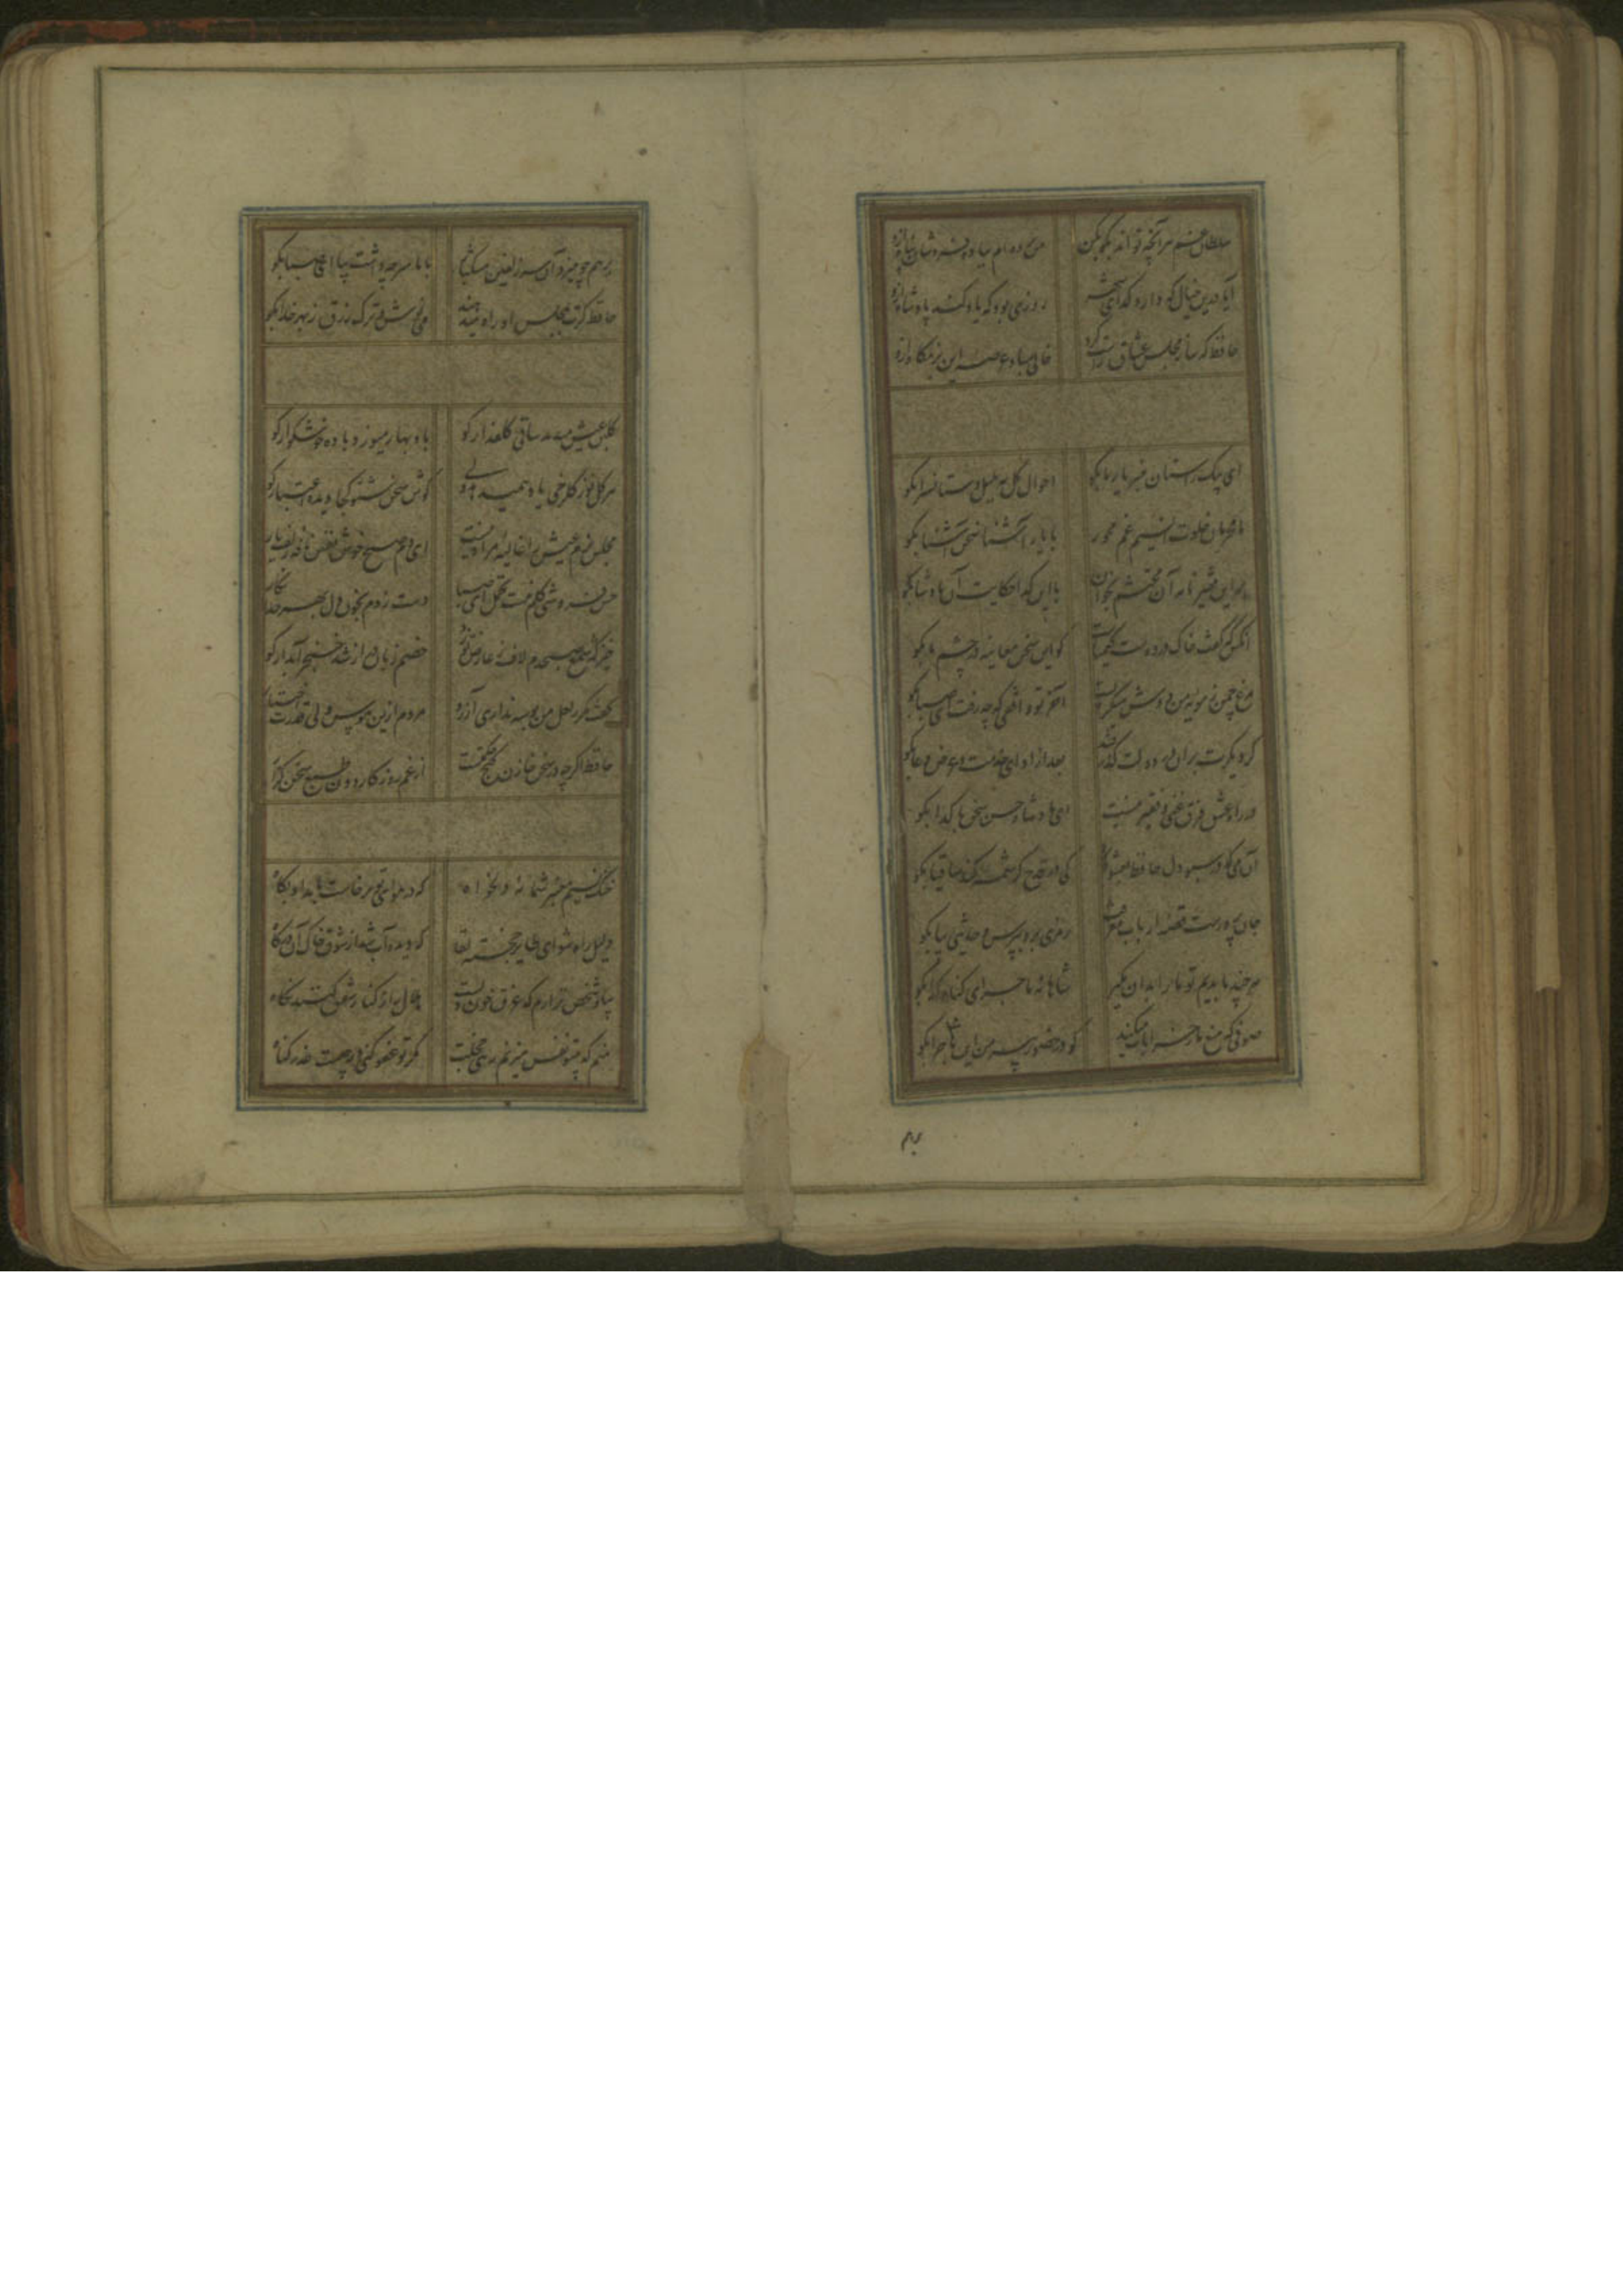 سلطان غم هر آنچه تواند بگو بکن من برده ام بباده فروشان پناه ازو
آیا درین خیال که دارد گدای شهر روزی بود که یاد کند پادشاه ازو
حافظ که ساز مجلس عشاق راست کرد خالی مباد عرصه این بزمگاه ازو
ای پیک راستان خبر یار ما بگو احوال گل به بلبل دستانسرا بگو
ما محرمان خلوت انسیم غم مخور با یار آشنا سخن آشنا بگو
بر این فقیر نامه آن محتشم بخوان با این گدا حکایت آن پادشا بگو
آنکس که گفت خاک در دوست کیمیاست گو این سخن معاینه در چشم ما بگو
مرغ چمن ز مویه من دوش میگریست آخر تو واقفی که چه رفت ای صبا بگو
گر دیگرت بران در دولت گذر فتد بعد از ادای خدمت و عرض دعا بگو
در راه عشق فرق غنی و فقیر نیست ای پادشاه حسن سخن با گدا بگو
آن می که در سبو دل حافظ بعشوه کی در قدح کرشمه کند ساقیا بگو
جان پرورست قصه ارباب معرفت رمزی برو بپرس و حدیثی بیا بگو
هر چند ما بدیم تو ما را بدان مگیر شاهانه ماجرای گناه گدا بگو
صوفی که منع ما ز خرابات میکند گو در حضور پیر من این ماجرا بگو
برهم
برهم چو میزد آن سر زلفین مشکبار با ما سر چه داشت بیا ای صبا بگو
حافظ گرت بمجلس او راه میدهند می نوش و ترک زرق ز بهر خدا بگو
گلبن عیش میدمد ساقی گلعذار کو باد بهار میوزد باده خوشگوار کو
هر گل نو ز گلرخی یاد همیدهد ولی گوش سخن شنو کجا دیده اعتبار کو
مجلس بزم عیش را غالیه مراد نیست ای دم صبح خوش نفس نافه زلف یار کو
حسن فروشی گلم نیست تحمل ای صبا دست زدم بخون دل بهر خدا نگار کو
خیره گر شمع صبحدم لاف ز عارض تو زد خصم زبان دراز شد خنجر آبدار کو
گفت مگر ز لعل من بوسه نداری آرزو مردم ازین هوس ولی قدرت اختیار کو
حافظ اگرچه در سخن خازن گنج حکمتست از غم روزگار دون طبع سخن گزار کو
خنک نسیم معنبر شمامه دلخواه که در هوای تو برخاست بامداد پگاه
دلیل راه شو ای طایر خجسته لقا که دیده آب شد از شوق خاک آن درگاه
بیاد شخص نزارم که غرق خون دلست هلال را ز کنار شفق کنید نگاه
منم که بیتو نفس میزنم زهی خجلت مگر تو عفو کنی ورنه چیست عذر گناه